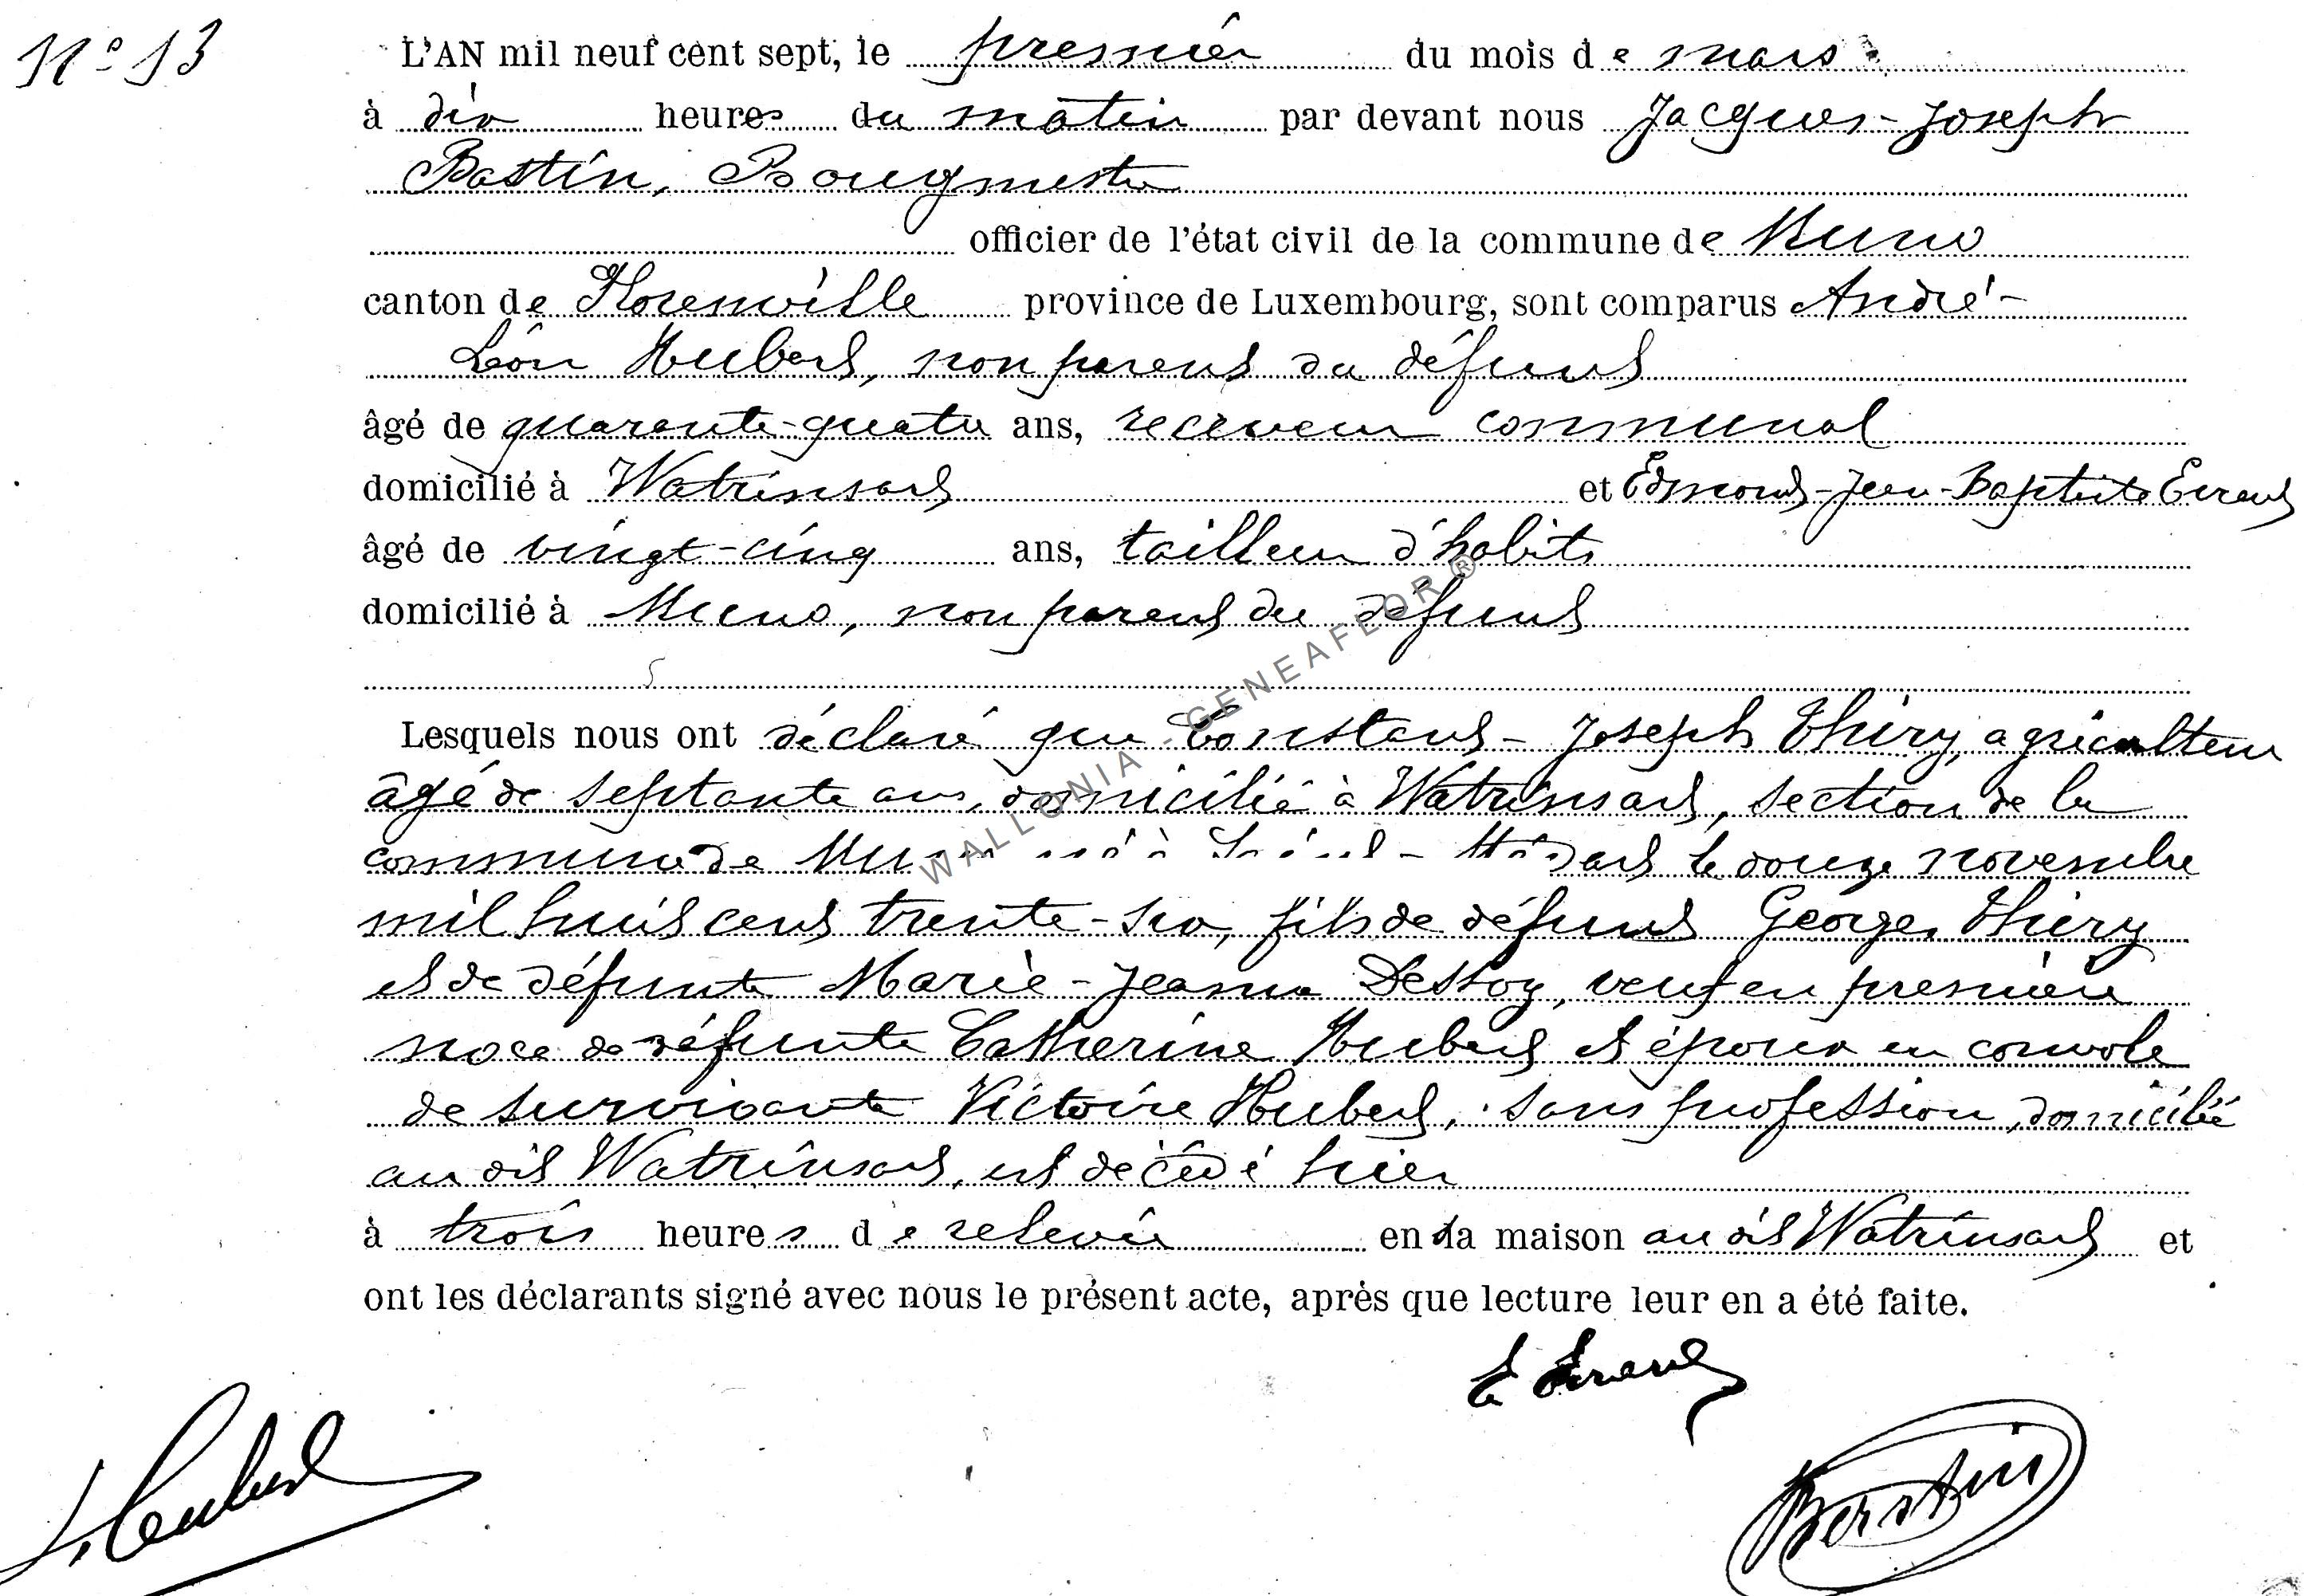 N° 13
L'AN mil neuf cent sept, le premier du mois de mars
à dix heures du matin par devant nous Jacques-Joseph
Bastin, Bougmestre
officier de l'état civil de la commune de Muno
canton de Florenville province de Luxembourg, sont comparus André-
Léon Hubert, non parent du défunt
âgé de quarante-quatre ans, receveur communal
domicilié à Watrinsart et Edmond-Jean-Baptiste Evrard
âgé de vingt-cinq ans, tailleur d'habits
domicilié à Muno, non parent du défunt
Lesquels nous ont déclaré que Constant-Joseph Thiry, agriculteur
âgé de septante ans, domicilié à Watrinsart, section de la
commune de Muno né à Médard le douze novembre
mil huit cent trente-six, fils de défunt Georges Thiry
et de défunte Marie-Jeanne Dessoy, veuf en première
noce de défunte Catherine Hubert et époux en convole
de survivante Victoire Hubert, sans profession, domiciliée
au dit Watrinsart, est décédé hier
à trois heures de relevée en sa maison au dit Watrinsart et
ont les déclarants signé avec nous le présent acte, après que lecture leur en a été faite.
Hubert
Bastin
WALLONIA - GENEAFLOR ®